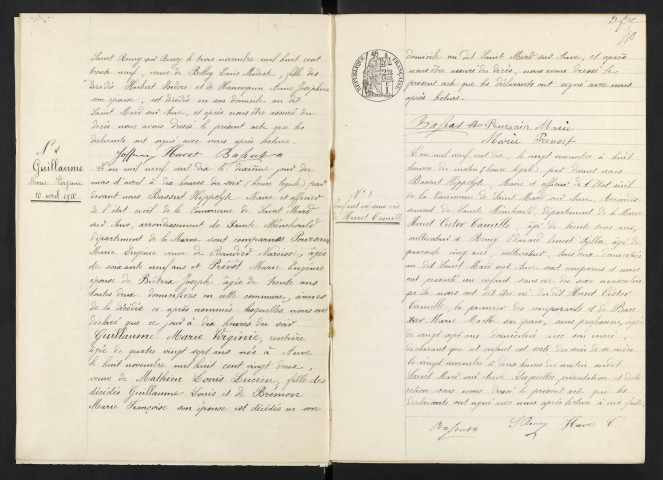 Saint Remy sur Bussy le trois novembre mil huit cent
trente neuf, veuve de Billey Louis Modeste, fille des
décédés Hubert Isidore et de Hannequin Anne Joséphine
son épouse, est décédée en son domicile au dit
Saint Mard sur Auve, et après nous être assuré du
décès nous avons dressé le présent acte que les
déclarants ont signé avec nous après lecture.
Joffrin Huvet Bassuet
N° 2
Guillaume
Marie Virginie
10 avril 1910
L'an mil neuf cent dix le dixième jour du
mois d'avril à dix heures du soir (heure légale) par
devant nous Bassuet Hippolyte Maire et officier
de l'état civil de la Commune de Saint Mard
sur Auve, arrondissement de Sainte Ménehould
département de la Marne sont comparues Poursain
Marie Eugénie veuve de Narcisse, âgée
de soixante neuf ans et Prévost Marie Eugénie
épouse de Joseph âgée de trente ans
toutes deux domiciliées en cette commune, amies
de la décédée ci après nommée lesquelles nous ont
déclaré que ce jour à dix heures du soir
Guillaume Marie Virginie, rentière
âgée de quatre vingt sept ans née à Auve
le huit novembre mil huit cent vingt deux,
veuve de Mathieu Louis Lucien, fille des
décédés Guillaume Louis et de Bremon
Marie Françoise son épouse est décédée en son
10
domicile au dit Saint Mard sur Auve, et après
nous être assuré du décès, nous avons dressé le
présent acte que les déclarants ont signé avec nous
après lecture.
RÉPUBLIQUE FRANÇAISE
Bassuet Poursain Marie
Marie Prévost
N° 3
Enfant né sans vie
de Huvet Camille
L'an mil neuf cent dix, le vingt novembre à huit
heures du matin (heure légale) par devant nous
Bassuet Hippolyte, Maire et officier de l'état civil
de la Commune de Saint Mard sur Auve, Arrondis-
sement de Sainte Ménehould, département de la Marne
Huvet Victor Camille, âgé de trente trois ans,
cultivateur et Remy âgé de
quarante cinq ans, cultivateur, tous deux domiciliés
au dit Saint Mard sur Auve ont comparus et nous
ont présenté un enfant sans vie du sexe masculin
qu'ils nous ont dit être né du dit Huvet Victor
Camille, le premier des comparants et de
Marie Marthe son épouse, sans profession, âgée
de vingt sept ans domiciliée avec son mari,
déclarant que cet enfant est sorti du sein de sa mère
le vingt novembre à heures du matin audit
Saint Mard sur Auve. Desquelles présentation et décla-
ration nous avons dressé le présent acte que les
déclarants ont signé avec nous après lecture à eux faite.
Bassuet Remy Huvet C